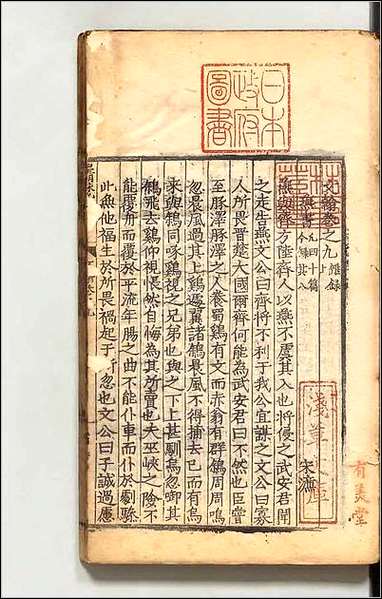 日本
政府
圖書
文翰卷之九 雜錄
燕書 凡四十篇 今錄其八 宋濂
燕與齊方陸齊人以燕不虞其入也將侵之武安君聞
之走告燕文公曰齊將不利于我公宜謀之文公曰寡
人所畏晋楚大國爾齊何能為武安君曰不然也臣嘗
至豚澤豚澤之人養蜀鷄有文而赤翁有群鶵周周鳴
忽晨風過其上鷄遽翼諸鶵晨風不得捕去已而有烏
來與鶵同啄鷄視之兄弟也與之下上甚馴烏忽啣其
鶵飛去鷄仰視悵然自悔為其所賣也夫巫峽之險不
能覆舟而覆於平流羊腸之曲不能仆車而仆於劇驂
此無他福生於所畏禍起于所忽也文公曰子誠過慮
淺草文庫
有美堂